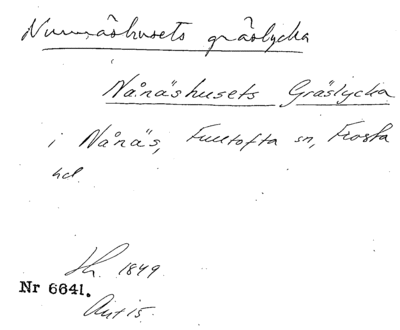 Nunnäshusets gräslycka
Nånäshusets Gräslycka
i Nånäs, Fulltofta sn, Frosta
hd
Lh. 1849
Nr 6641.
Art 15.